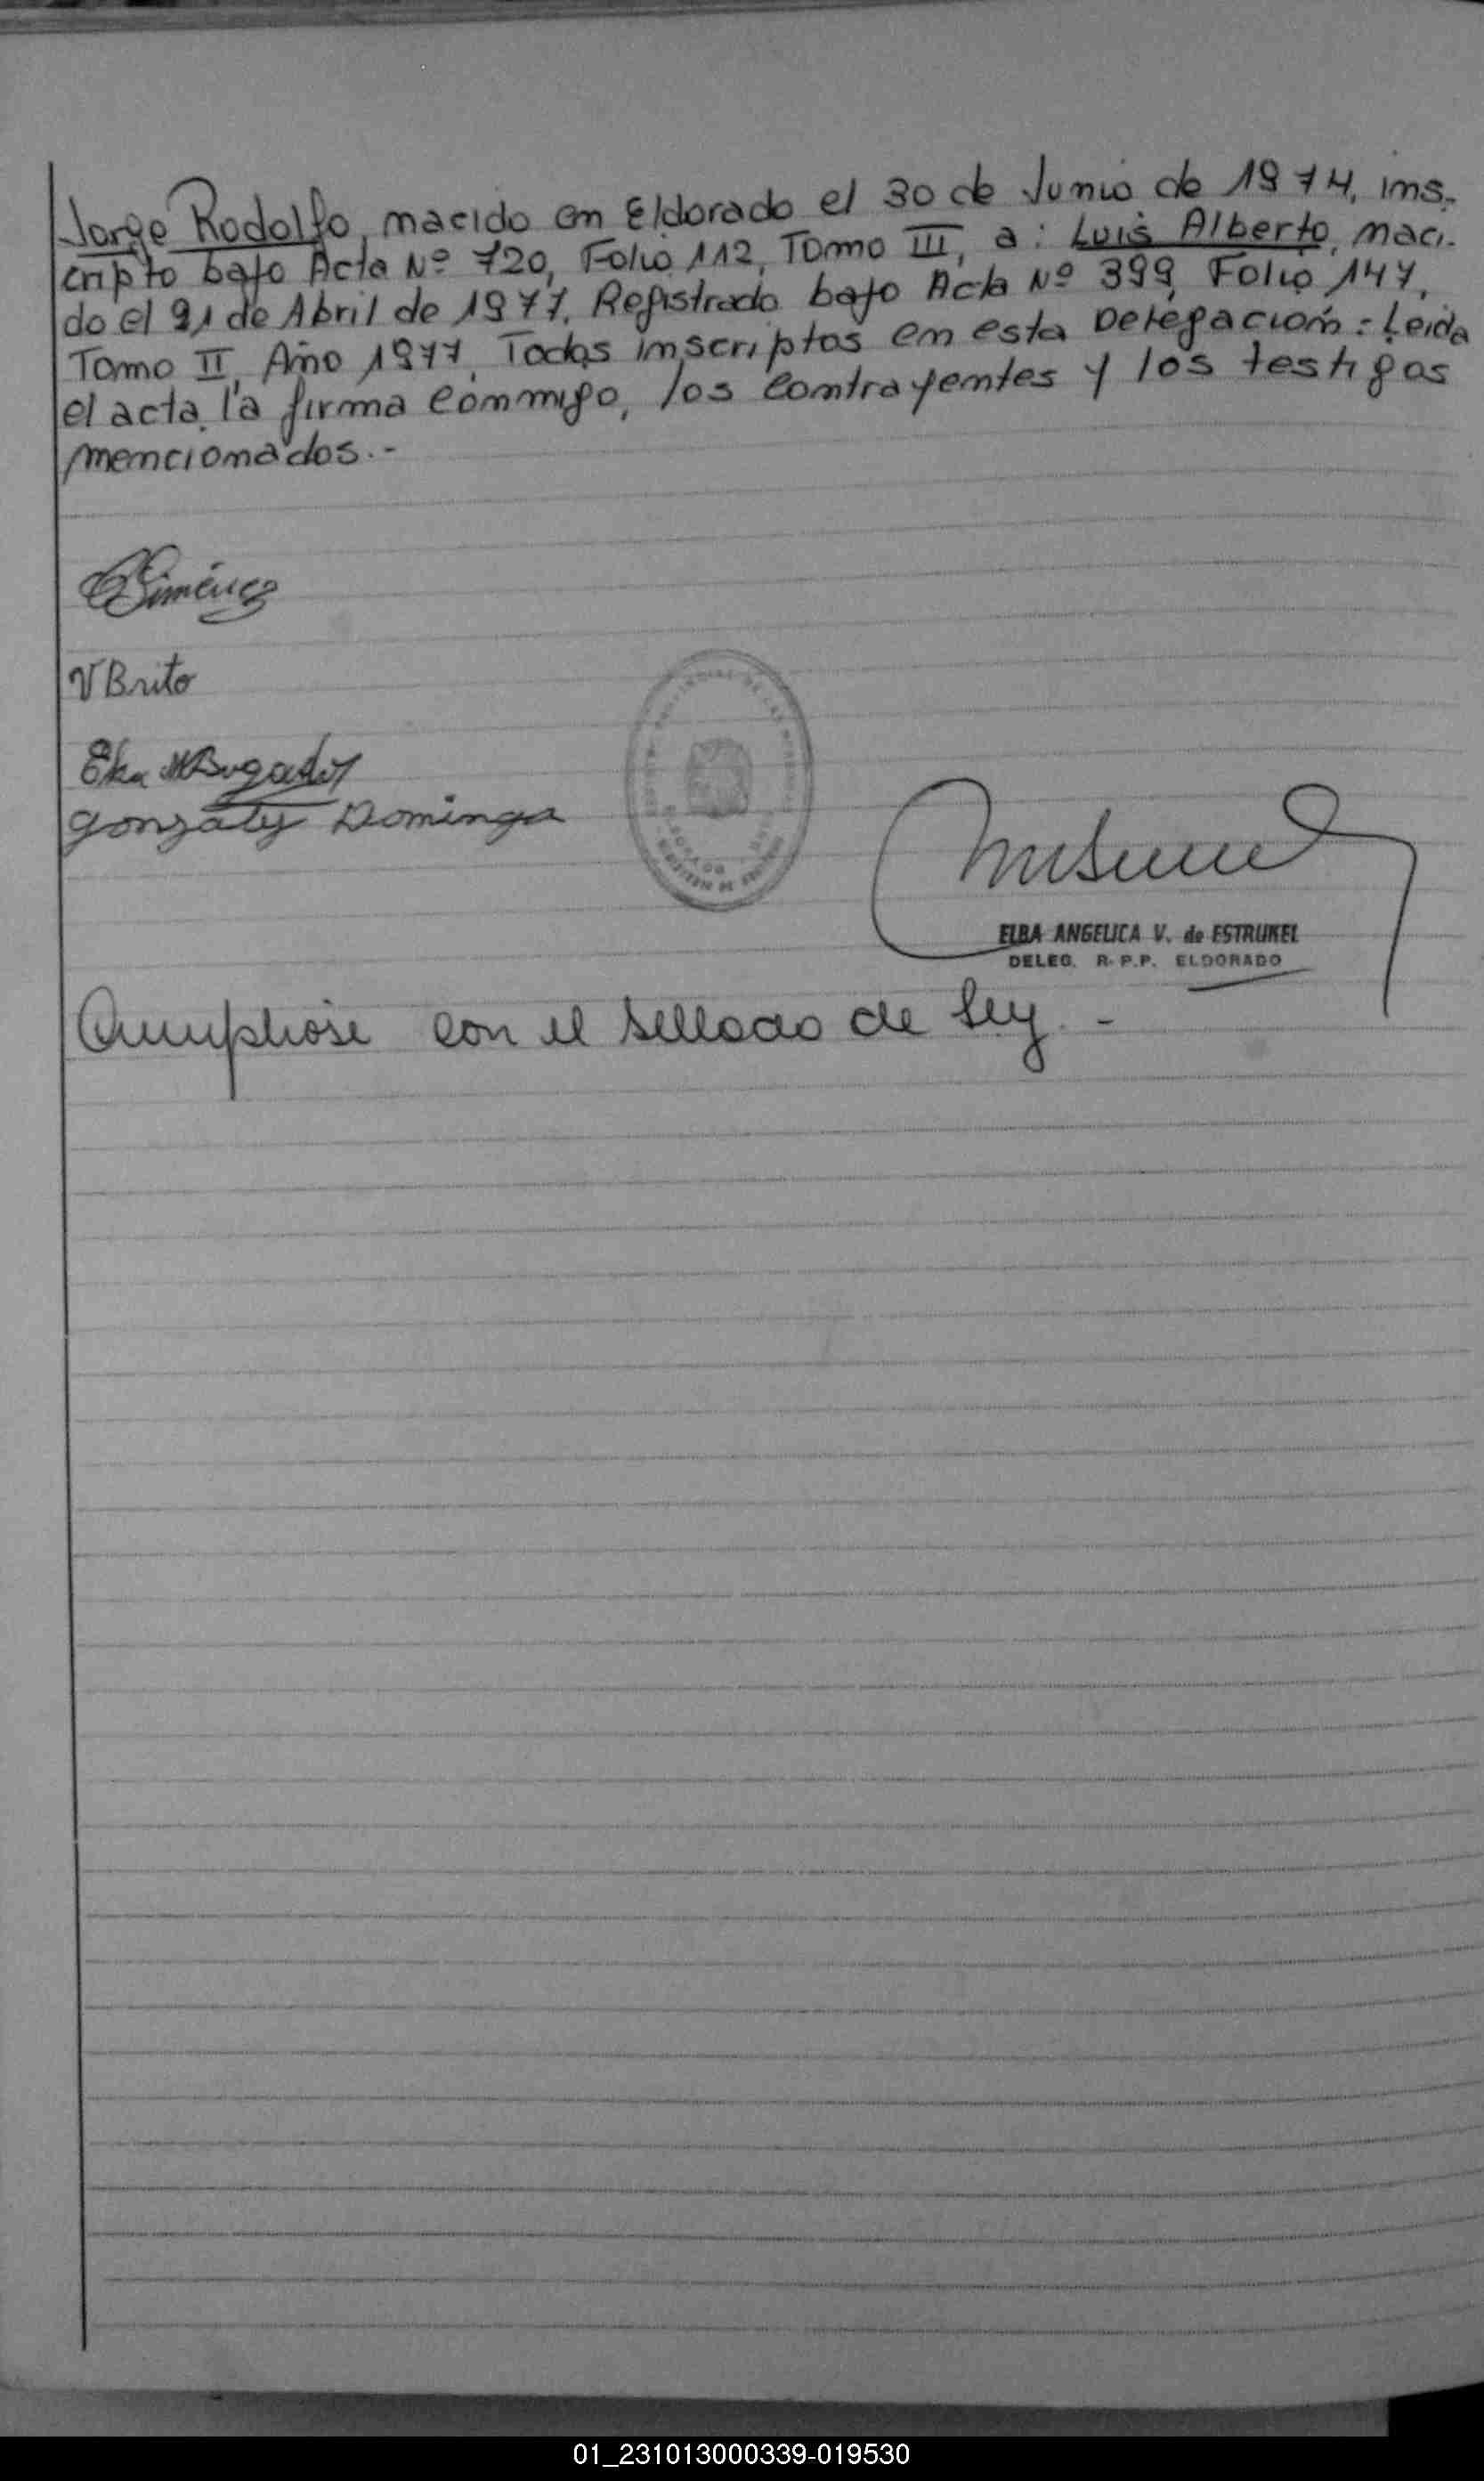 Jorge Rodolfo, nacido en Eldorado el 30 de Junio de 1974, ins-
cripto bajo Acta Nº 720, Folio 112, Tomo III, a: Luis Alberto, naci-
do el 21 de Abril de 1977, Registrado bajo Acta Nº 399, Folio 147,
Tomo II, Año 1977, Todos inscriptos en esta Delegación: Leida
el acta, la firma conmigo, los contrayentes y los testigos
mencionados.-
Giménez
V Brito
Gonzalez Dominga
ELBA ANGELICA V. de ESTRUKEL
DELEG. R.P.P. ELDORADO
Cumpliose con el sellado de ley.-
01_231013000339-019530